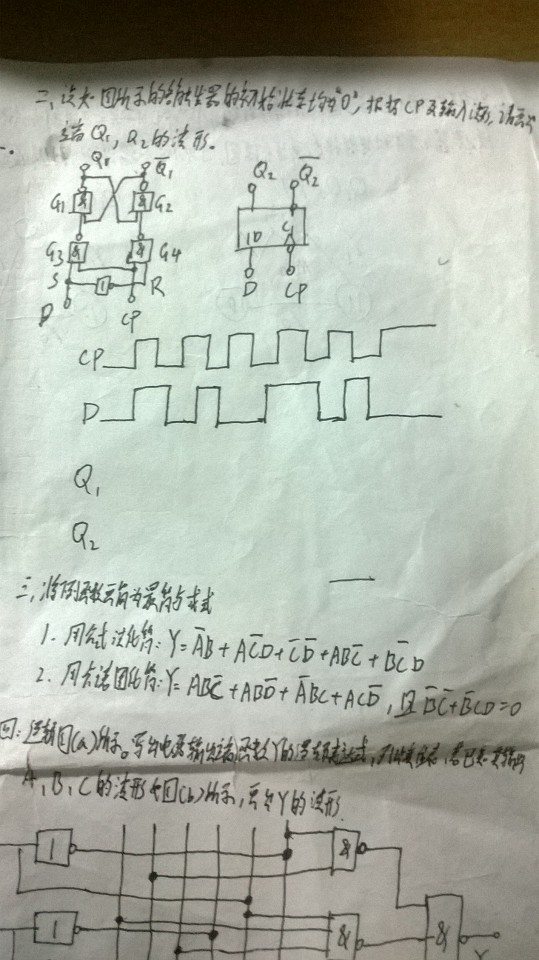 二、设如图所示的各触发器的初始状态均为"0"，根据CP及输入波形，请画出
一.
端Q1，Q2的波形.
Q1 Q̅1 Q2 Q̅2
G1 & & G2
G3 & & G4 1D C1
S 1 R
D CP D CP
CP
D
Q1
Q2
三、将下列函数化简为最简与或式
1. 用公式法化简: Y=A̅B+AC̅D+C̅D̅+ABC̅+BC̅D
2. 用卡诺图化简: Y=ABC̅+ABD̅+A̅BC+ACD̅, 且B̅C̅+B̅CD=0
四: 逻辑图(a)所示。写出电路输出端函数Y的逻辑表达式，
A、B、C的波形如图(b)所示，画出Y的波形.
1 &
1 & &
Y